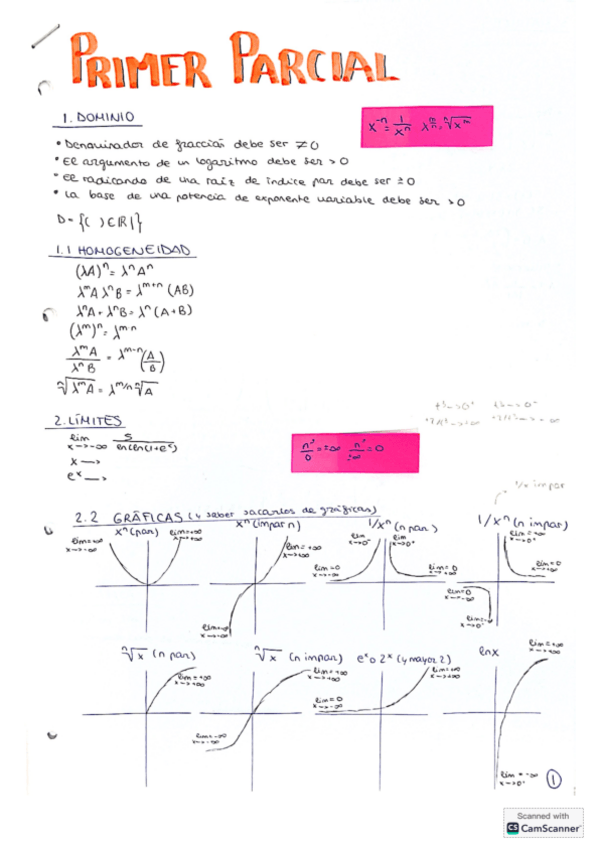 PRIMER PARCIAL
1. DOMINIO
x⁻ⁿ = 1/xⁿ   x^(m/n) = ⁿ√xᵐ
• Denominador de fracción debe ser ≠ 0
• El argumento de un logaritmo debe ser > 0
• El radicando de una raíz de índice par debe ser ≥ 0
• La base de una potencia de exponente variable debe ser > 0
D = {( ) ∈ ℝ | }
1.1 HOMOGENEIDAD
(λA)ⁿ = λⁿAⁿ
λᵐA λⁿB = λᵐ⁺ⁿ (AB)
λⁿA + λⁿB = λⁿ(A+B)
(λᵐ)ⁿ = λᵐⁿ
λᵐA / λⁿB = λᵐ⁻ⁿ (A/B)
ⁿ√(λᵐA) = λ^(m/n) ⁿ√A
2. LÍMITES
lim x→-∞ 5 / ln(ln(1+eˣ))
x →
eˣ →
nº/0 = ±∞   nº/±∞ = 0
1/x impar
2.2 GRÁFICAS (y saber sacarlos de gráficas)
xⁿ (par)   xⁿ (impar n)   1/xⁿ (n par)   1/xⁿ (n impar)
lim=+∞ x→-∞   lim=+∞ x→+∞   lim=+∞ x→+∞   lim x→0⁻   lim x→0⁺   lim=+∞ x→0⁺
lim=0 x→-∞   lim=0 x→+∞   lim=0 x→+∞
lim=0 x→-∞
lim=-∞ x→-∞   lim=-∞ x→0⁻
ⁿ√x (n par)   ⁿ√x (n impar)   eˣ o 2ˣ (y mayor 2)   lnx
lim=+∞ x→+∞   lim=+∞ x→+∞   lim=+∞ x→+∞   lim=+∞ x→+∞
lim=0 x→-∞
lim=-∞ x→-∞
lim=-∞ x→0⁺
1
Scanned with
CS CamScanner